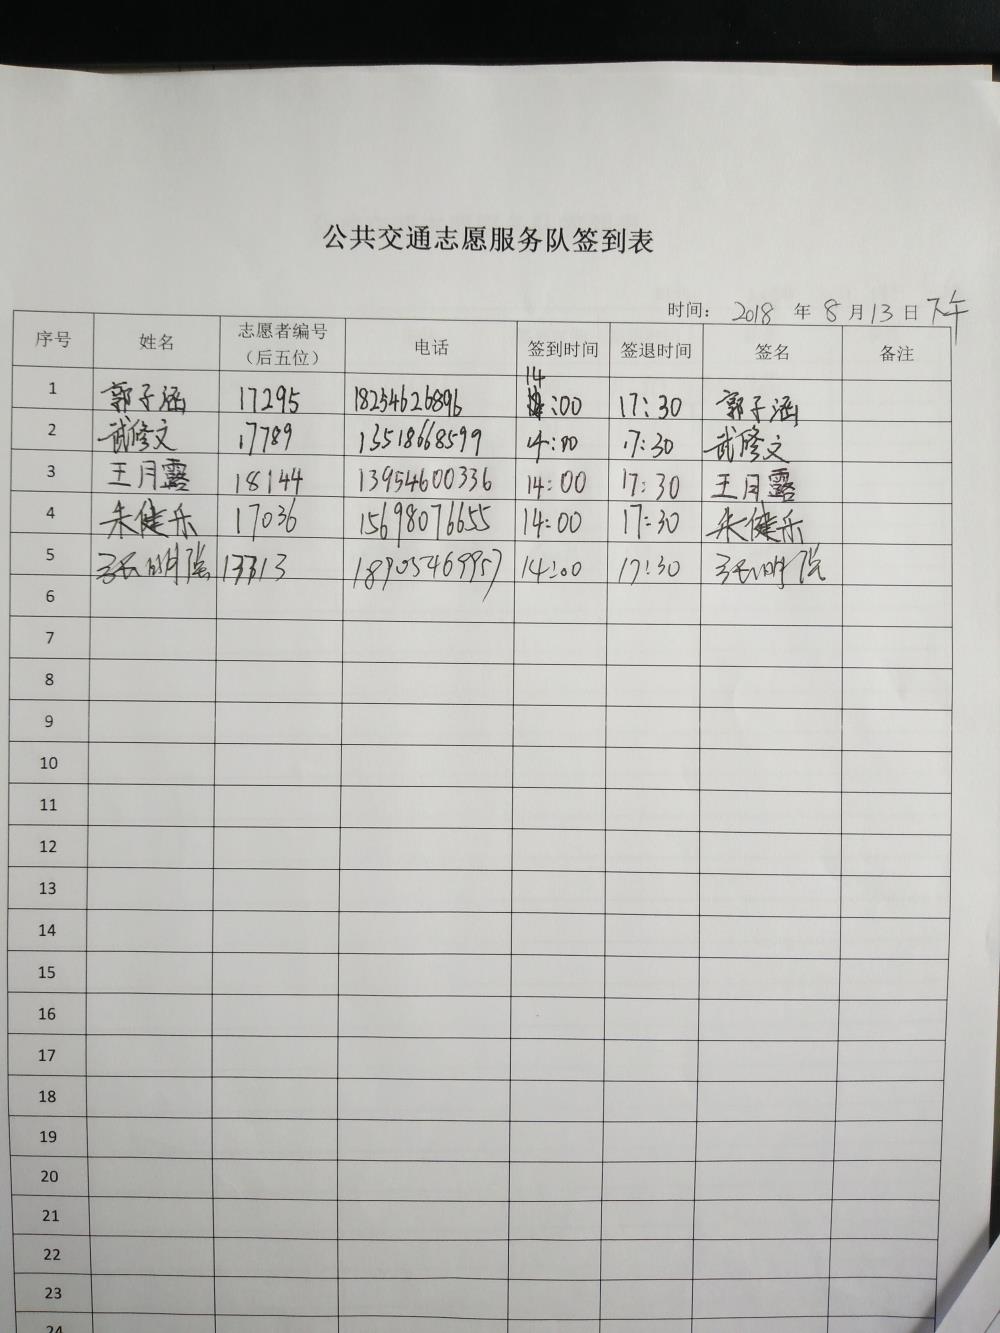 公共交通志愿服务队签到表
时间： 2018 年 8 月 13 日 下午
序号 姓名 志愿者编号（后五位） 电话 签到时间 签退时间 签名 备注
1 郭子涵 17295 18254626896 14:00 17:30 郭子涵
2 武修文 17789 13518668599 14:00 17:30 武修文
3 王月露 18144 13954600336 14:00 17:30 王月露
4 朱健乐 17036 15698076655 14:00 17:30 朱健乐
5 13313 18905469957 14:00 17:30
6
7
8
9
10
11
12
13
14
15
16
17
18
19
20
21
22
23
24